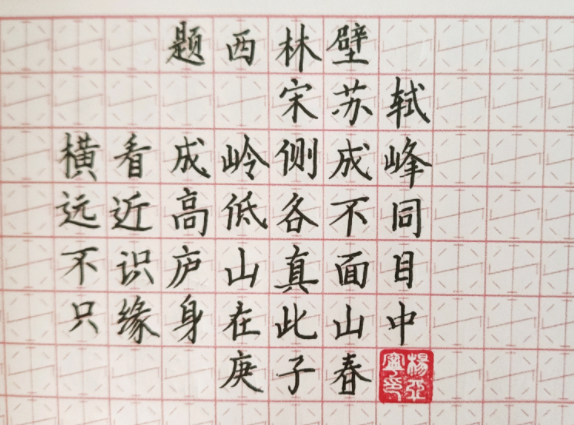 题西林壁
宋苏轼
横看成岭侧成峰
远近高低各不同
不识庐山真面目
只缘身在此山中
庚子春